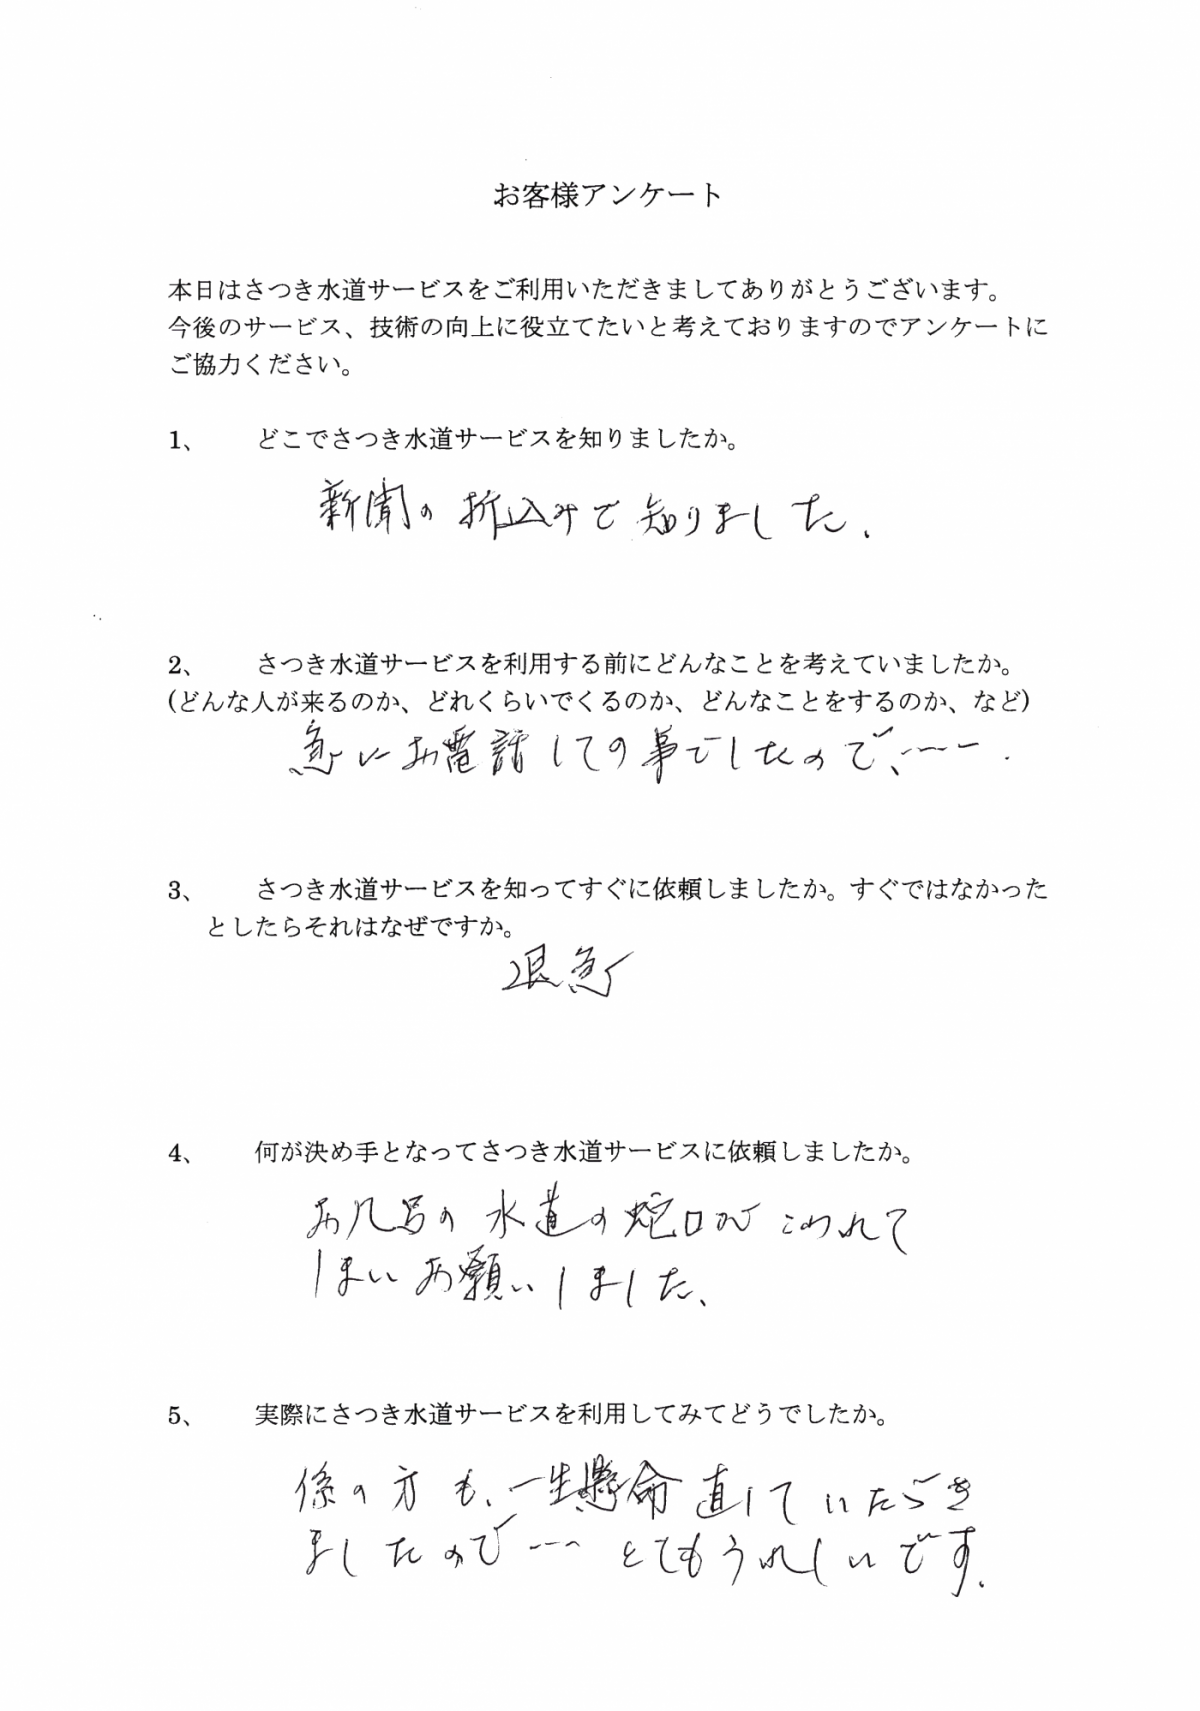 お客様アンケート
本日はさつき水道サービスをご利用いただきましてありがとうございます。
今後のサービス、技術の向上に役立てたいと考えておりますのでアンケートに
ご協力ください。
1、 どこでさつき水道サービスを知りましたか。
新聞の折込みで知りました、
2、 さつき水道サービスを利用する前にどんなことを考えていましたか。
(どんな人が来るのか、どれくらいでくるのか、どんなことをするのか、など)
急にお電話しての事でしたので、----.
3、 さつき水道サービスを知ってすぐに依頼しましたか。すぐではなかった
としたらそれはなぜですか。
急
4、 何が決め手となってさつき水道サービスに依頼しましたか。
お風呂の水道の蛇口がこわれて
しまいお願いしました、
5、 実際にさつき水道サービスを利用してみてどうでしたか。
係の方も、一生懸命直していただき
ましたので---とてもうれしいです.